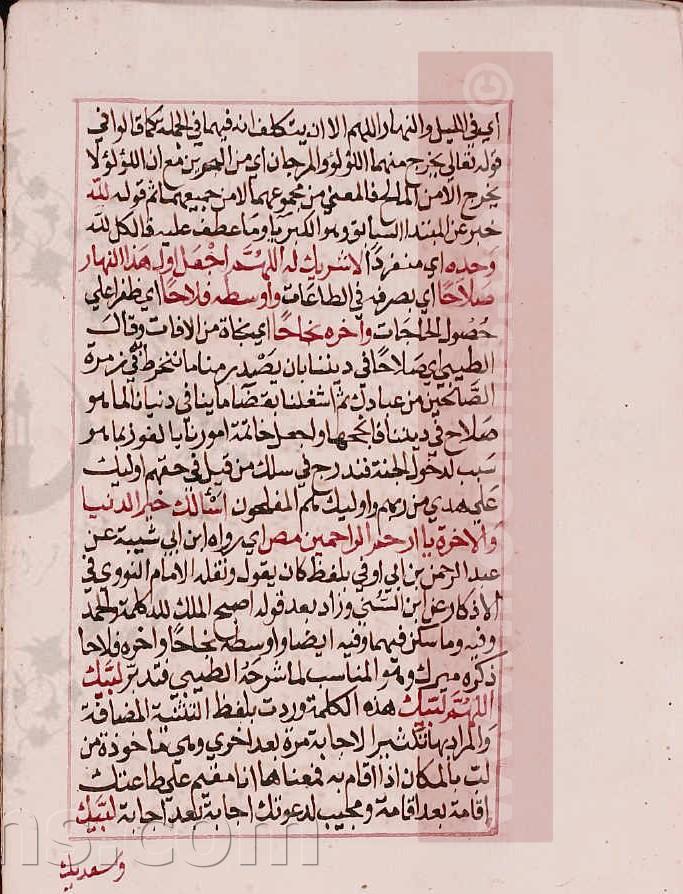 اي في الليل والنهار اللهم الا ان يتكلف انه فيهما في الجملة كما قالوا في
قوله تعالى يخرج منهما اللؤلؤ والمرجان اي من البحرين مع ان اللؤلؤ لا
يخرج الا من المالح فالمعني من مجموعهما لا من جميعهما ثم قوله لله
خبر عن المبتدا السابق وهو الكبريا وما عطف عليه فالكل لله
وحده اي منفردا لا شريك له اللهم اجعل اول هذا النهار
صلاحا اي بصرفه في الطاعات واوسطه فلاحا اي ظفرا علي
حصول الحاجات وآخره نجاحا اي نجاة من الافات وقال
الطيبي اي صلاحا في ديننا بان يصدر منا ما ننخرط في زمرة
الصالحين من عبادك ثم اشغلنا بقضا ما ربنا في دنيانا لما هو
صلاح في ديننا فانجحها واجعل خاتمة امورنا بالفوز بما هو
سبب لدخول الجنة فندرج في سلك من قيل في حقهم اوليك
علي هدي من ربهم واوليك هم المفلحون اسألك خير الدنيا
والاخرة يا ارحم الراحمين مص اي رواه ابن ابي شيبة عن
عبد الرحمن بن ابي اوفي بلفظ كان يقول ونقله الامام النووي في
الاذكار عن ابن السني وزاد بعد قوله اصبح الملك لله كلمة الحمد
وفيه وما سكن فيهما وفيه ايضا واوسطه نجاحا واخره فلاحا
ذكره ميرك وهو المناسب لما شرحه الطيبي فتدبر لبيك
اللهم لبيك هذه الكلمة وردت بلفظ التثنية المضافة
والمراد بها تكثير الاجابة مرة بعد اخري وهي ماخوذة من
لب بالمكان اذا اقام به فمعناها انا مقيم علي طاعتك
اقامة بعد اقامة ومجيب لدعوتك اجابة بعد اجابة لبيك
وسعديك
ns.com